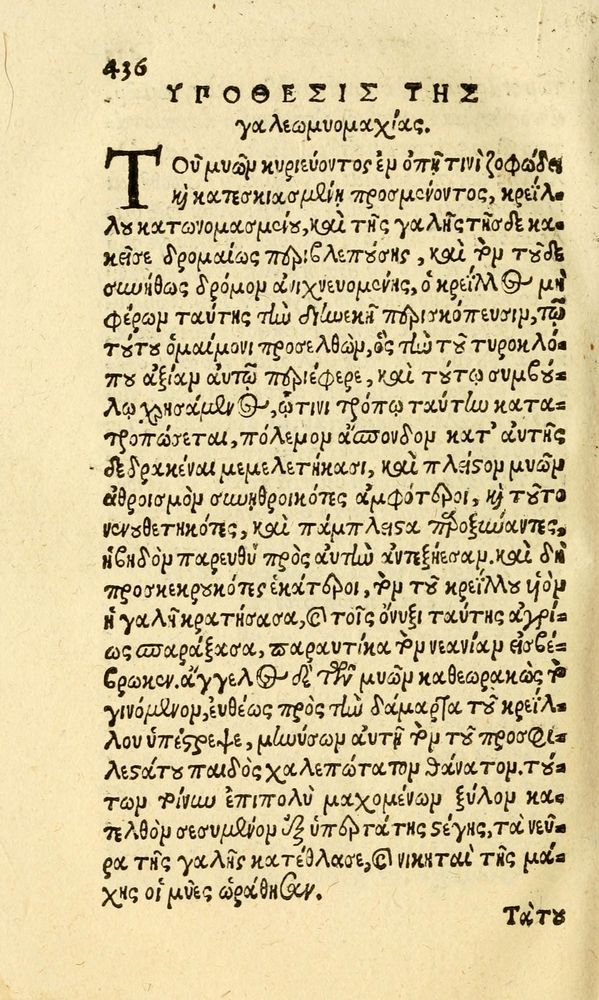 436
ΥΠΟΘΕΣΙΣ ΤΗΣ
γαλεωμυομαχίας.
ΤΟῦ μυῶν κυριεύοντος ἐν ὀπῇ τινὶ ζοφώδει
καὶ κατεσκιασμένῃ προσμένοντος, κρεΐλ-
λου κατωνομασμένου, καὶ τῆς γαλῆς τῆσδε κα-
κεῖσε δρομαίως περιβλεπούσης, καὶ τὸν τοῦδε
συνήθως δρόμον ἀνιχνευομένης, ὁ κρεΐλλος μὴ
φέρων ταύτης τὴν διηνεκῆ περισκόπευσιν, τῷ
τούτου ὁμαίμονι προσελθὼν, ὃς τὴν τοῦ τυροκλό-
που ἀξίαν αὐτῷ περιέφερε, καὶ τούτῳ συμβού-
λῳ χρησάμενος, ᾧτινι τρόπῳ ταύτην κατα-
τροπώσεται, πόλεμον ἄσπονδον κατ' αὐτῆς
δεδρακέναι μεμελετήκασι, καὶ πλεῖστον μυῶν
ἀθροισμὸν συνηθροικότες ἀμφότεροι, καὶ τοῦτο
νενουθετηκότες, καὶ πάμπλειστα προξυνάντες,
ἡβηδὸν παρευθὺ πρὸς αὐτὴν ἀντεξῄεσαν. καὶ δὴ
προσκεκρουκότες ἑκάτεροι, τὸν τοῦ κρεΐλλου υἱὸν
ἡ γαλῆ κρατήσασα, καὶ τοῖς ὄνυξι ταύτης ἀγρί-
ως σπαράξασα, παραυτίκα τὸν νεανίαν εἰσβέ-
βρωκεν. ἄγγελος δὲ τῶν μυῶν καθεωρακὼς τὸ
γινόμενον, εὐθέως πρὸς τὴν δάμαρτα τοῦ κρεΐλ-
λου ὑπέστρεψε, μηνύσων αὐτῇ τὸν τοῦ προσφι-
λεστάτου παιδὸς χαλεπώτατον θάνατον. τού-
των τοίνυν ἐπιπολὺ μαχομένων ξύλον κα-
πελθὸν σεσυμένον ἐξ ὑπερτάτης στέγης, τὰ νεῦ-
ρα τῆς γαλῆς κατέθλασε, καὶ νικηταὶ τῆς μά-
χης οἱ μύες ὡράθησαν.
Τὰ τοῦ